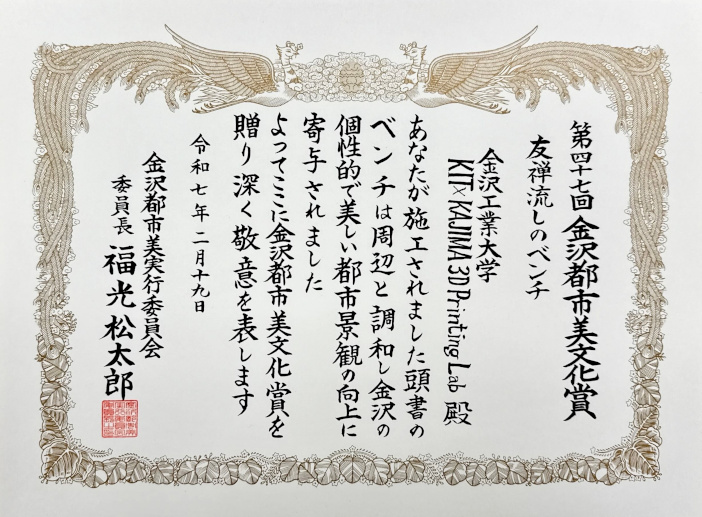 第四十七回 金沢都市美文化賞
友禅流しのベンチ
金沢工業大学
KIT×KAJIMA 3D Printing Lab 殿
あなたが施工されました頭書の
ベンチは周辺と調和し金沢の
個性的で美しい都市景観の向上に
寄与されました
よってここに金沢都市美文化賞を
贈り深く敬意を表します
令和七年二月十九日
金沢都市美実行委員会
委員長 福光松太郎